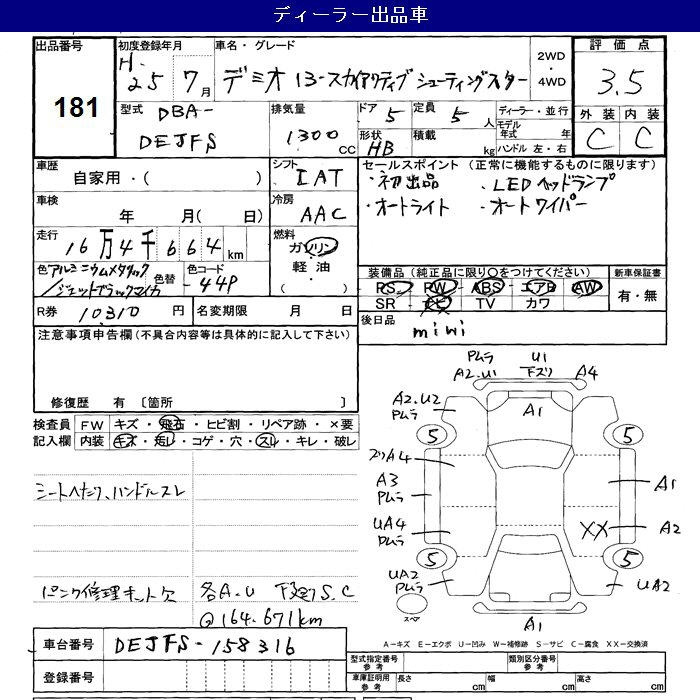 ディーラー出品車
出品番号
181
初度登録年月
H. 25 7月
車名・グレード
デミオ 13-スカイアクティブ シューティングスター
2WD
・
4WD
評価点
3.5
外装 内装
C C
型式
DBA-
DEJFS
排気量
1300 CC
ドア
5
定員
5人
形状
HB
積載
kg
ディーラー・並行
モデル年式 年
ハンドル 左・右
車歴
自家用・( )
シフト
IAT
車検
年 月( 日)
冷房
AAC
走行
16万4千664km
燃料
ガソリン
軽油
( )
色
アルミニウムメタリック
/ジェットブラックマイカ
色替
色コード
-44P
R券 10310円
名変期限 月 日
セールスポイント (正常に機能するものに限ります)
・初出品 ・LEDヘッドランプ
・オートライト ・オートワイパー
装備品(純正品に限り○をつけてください)
PS PW ABS エアB AW
SR ナビ TV カワ
新車保証書
有・無
後日品
miwi
注意事項申告欄(不具合内容等は具体的に記入して下さい)
修復歴 有 〔箇所 〕
検査員記入欄
FW キズ・飛石・ヒビ割・リペア跡・×要
内装 キズ・汚レ・コゲ・穴・スレ・キレ・破レ
シートへたり、ハンドルスレ
パンク修理キット欠
各A.U 下廻りS.C
@164.671km
PムラA2.U1
U1下ズリ
A4
A2.U2
Pムラ
A1
5
5
プリA4
A3
Pムラ
A1
UA4
Pムラ
XX
A2
5
5
UA2
Pムラ
UA2
スペア
A1
A-キズ E-エクボ U-凹み W-補修跡 S-サビ C-腐食 XX-交換済
車台番号 DEJFS-158316
登録番号
型式指定番号参考
類別区分番号参考
車庫証明用参考
長さ cm
幅 cm
高さ cm